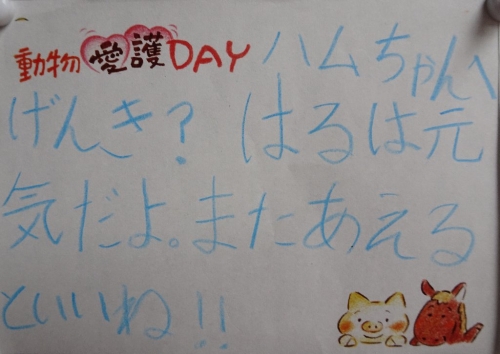 動物愛護DAY ハムちゃんへ
げんき? はるは元
気だよ。またあえる
といいね!!